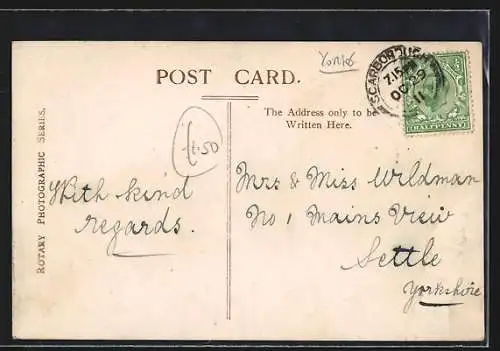 Yorks
POST CARD.
SCARBOROUGH
7.15 PM
OC 9
11
HALFPENNY
The Address only to be
Written Here.
£1.50
ROTARY PHOTOGRAPHIC SERIES.
With kind
regards.
Mrs & Miss Wildman
No 1 Mains View
Settle
Yorkshire